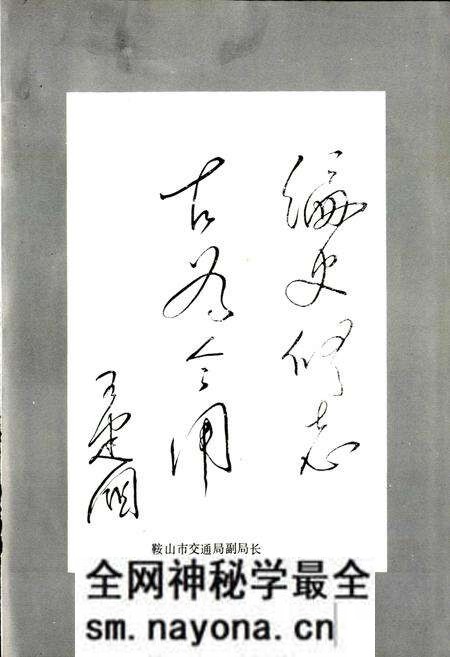 编史修志
古为今用
王建国
鞍山市交通局副局长
全网神秘学最全
sm.nayona.cn